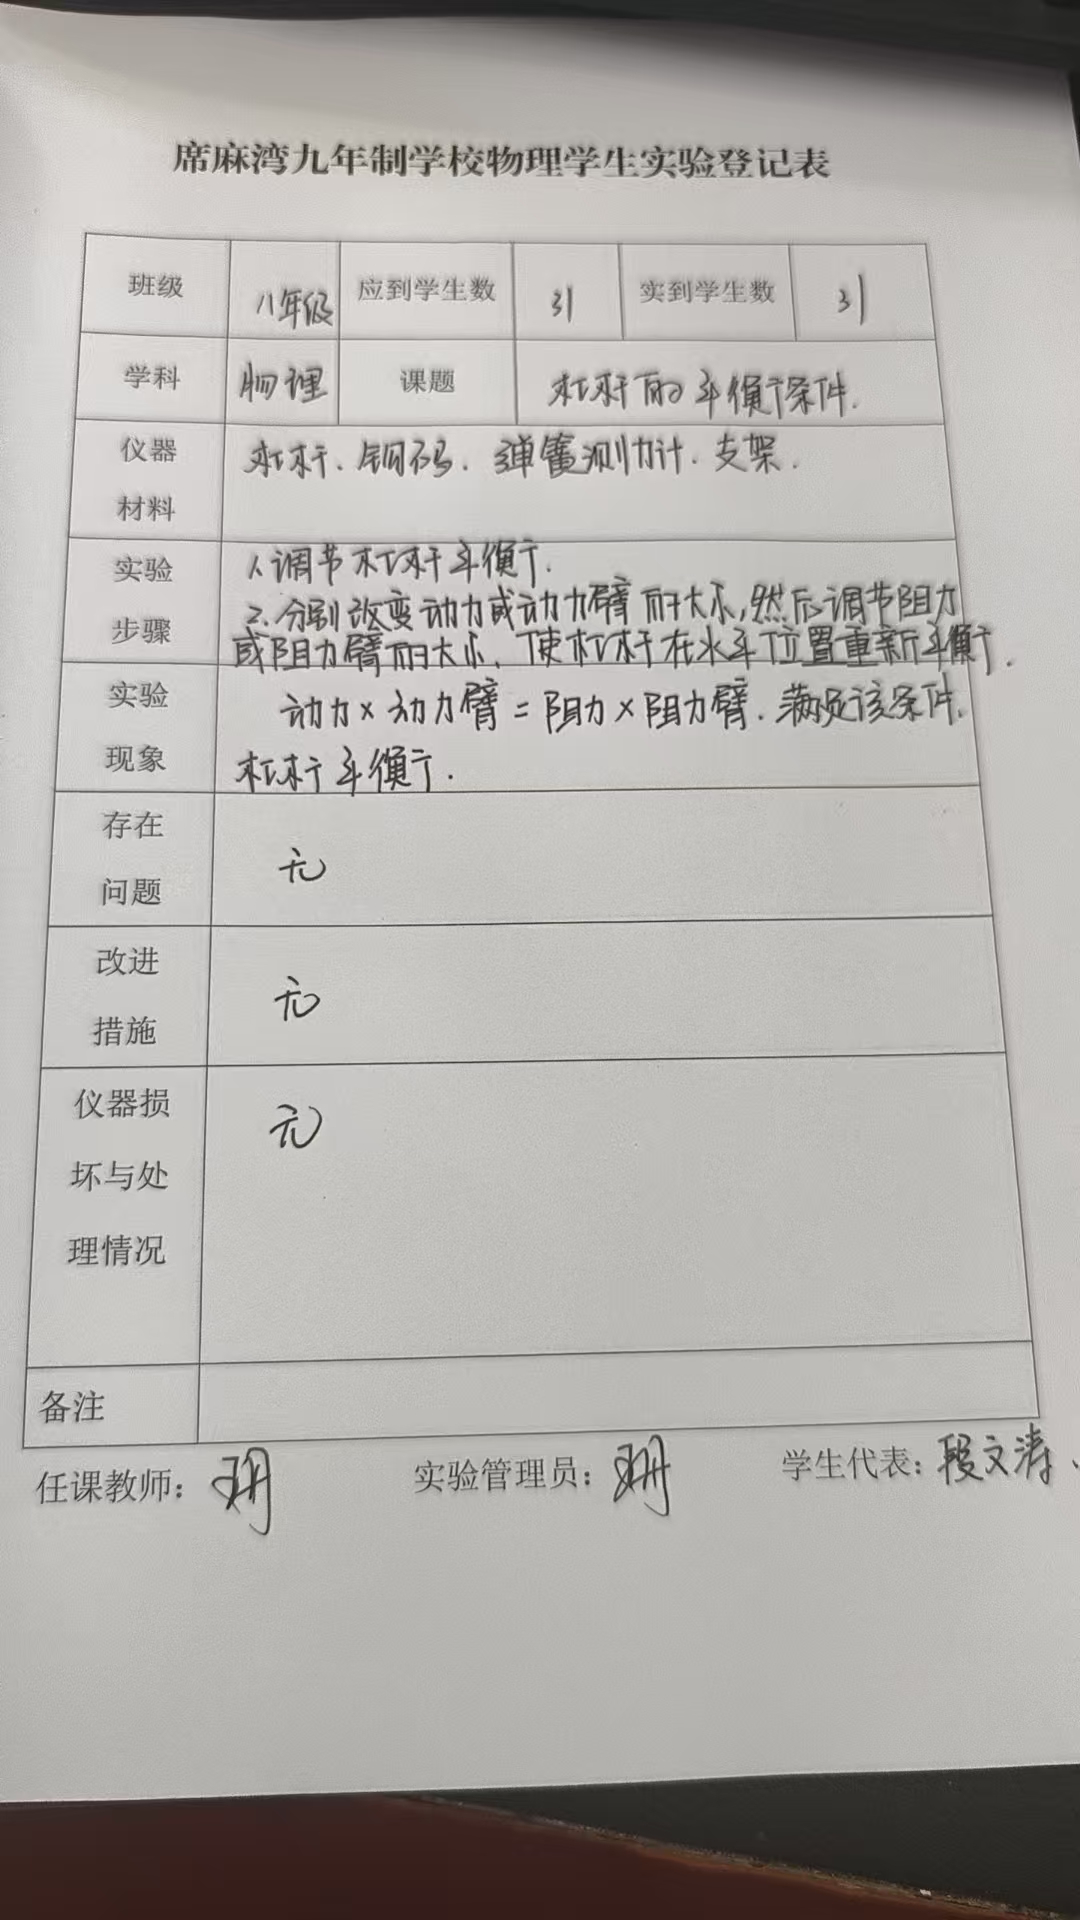 席麻湾九年制学校物理学生实验登记表
班级 八年级 应到学生数 31 实到学生数 31
学科 物理 课题 杠杆的平衡条件.
仪器 杠杆、钩码、弹簧测力计、支架.
材料
实验 1.调节杠杆平衡.
步骤 2.分别改变动力或动力臂的大小,然后调节阻力
或阻力臂的大小、使杠杆在水平位置重新平衡.
实验 动力×动力臂=阻力×阻力臂.满足该条件.
现象 杠杆平衡.
存在
问题 无
改进
措施 无
仪器损 无
坏与处
理情况
备注
任课教师: 实验管理员: 学生代表:段文涛.